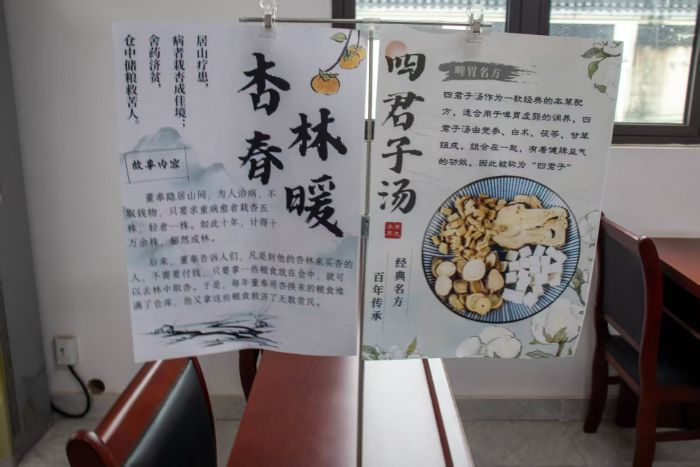 居山疗患，
病者栽杏成佳境；
舍药济贫，
仓中储粮救苦人。
杏林
春暖
故事内容
董奉隐居山间，为人治病，不
取钱物，只要求重病愈者栽杏五
株，轻者一株。如此十年，计得十
万余株，郁然成林。
后来，董奉告诉人们，凡是到他的杏林来买杏的
人，不需要付钱，只要拿一些粮食放在仓中，就可
以去林中取杏。于是，每年董奉用杏换来的粮食堆
满了仓库，他又拿这些粮食救济了无数贫民。
四君子汤
脾胃名方
四君子汤作为一款经典的本草配
方，适合用于脾胃虚弱的调养，四
君子汤由党参、白术、茯苓、甘草
组成，组合在一起，有着健脾益气
的功效，因此被称为“四君子”
经典名方
百年传承